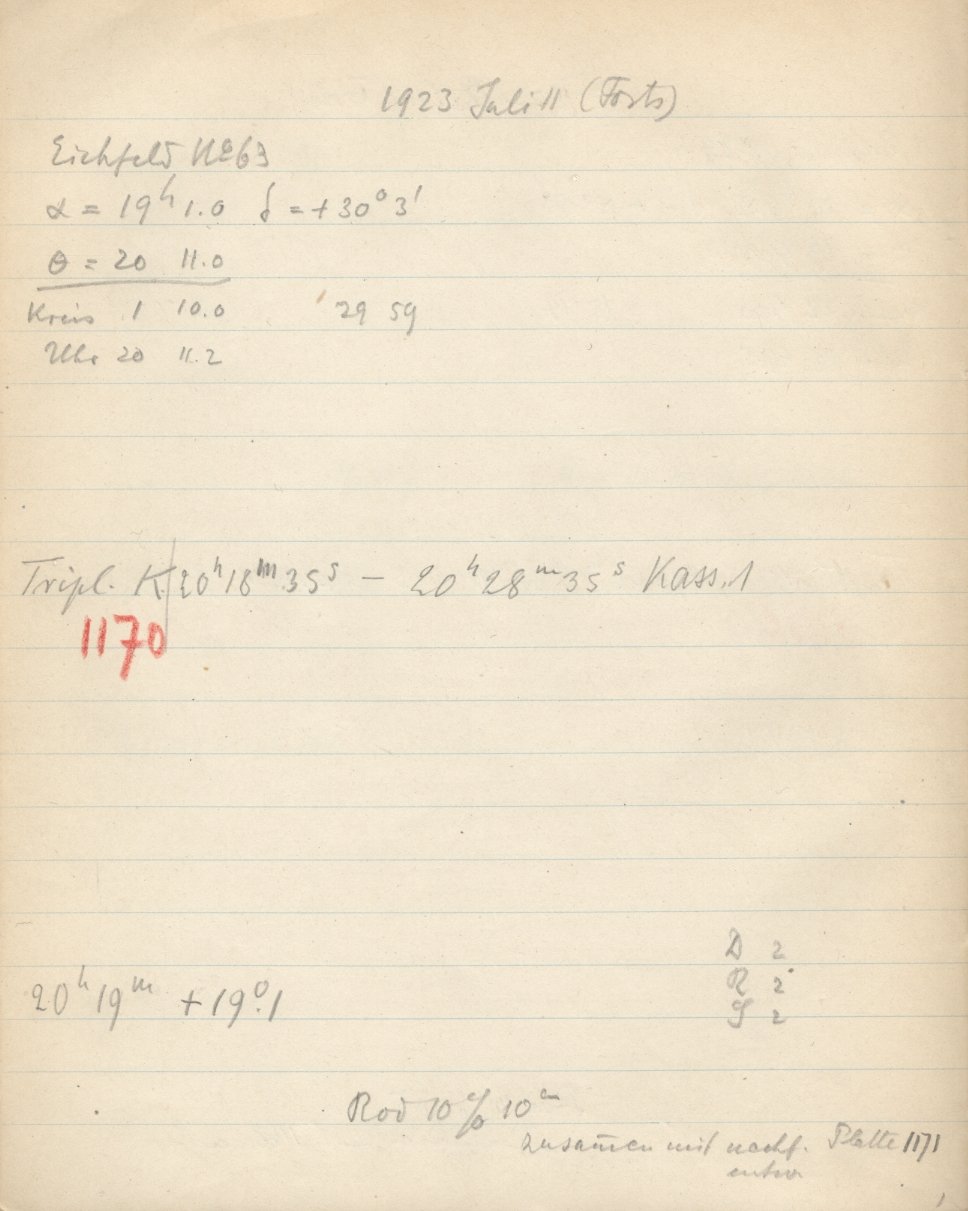 1923 Juli 11 (Forts)
Eichfeld No 63
α = 19h 1.0 δ = +30° 3'
θ = 20 11.0
Kreis 1 10.0 29 59
Uhr 20 11.2
Tripl. K. 20h 18m 35s – 20h 28m 35s Kass. 1
1170
D 2
R 2
S 2
20h 19m +19°.1
Rod 10 % 10m
zusam̄en mit nachf. Platte 1171
entw